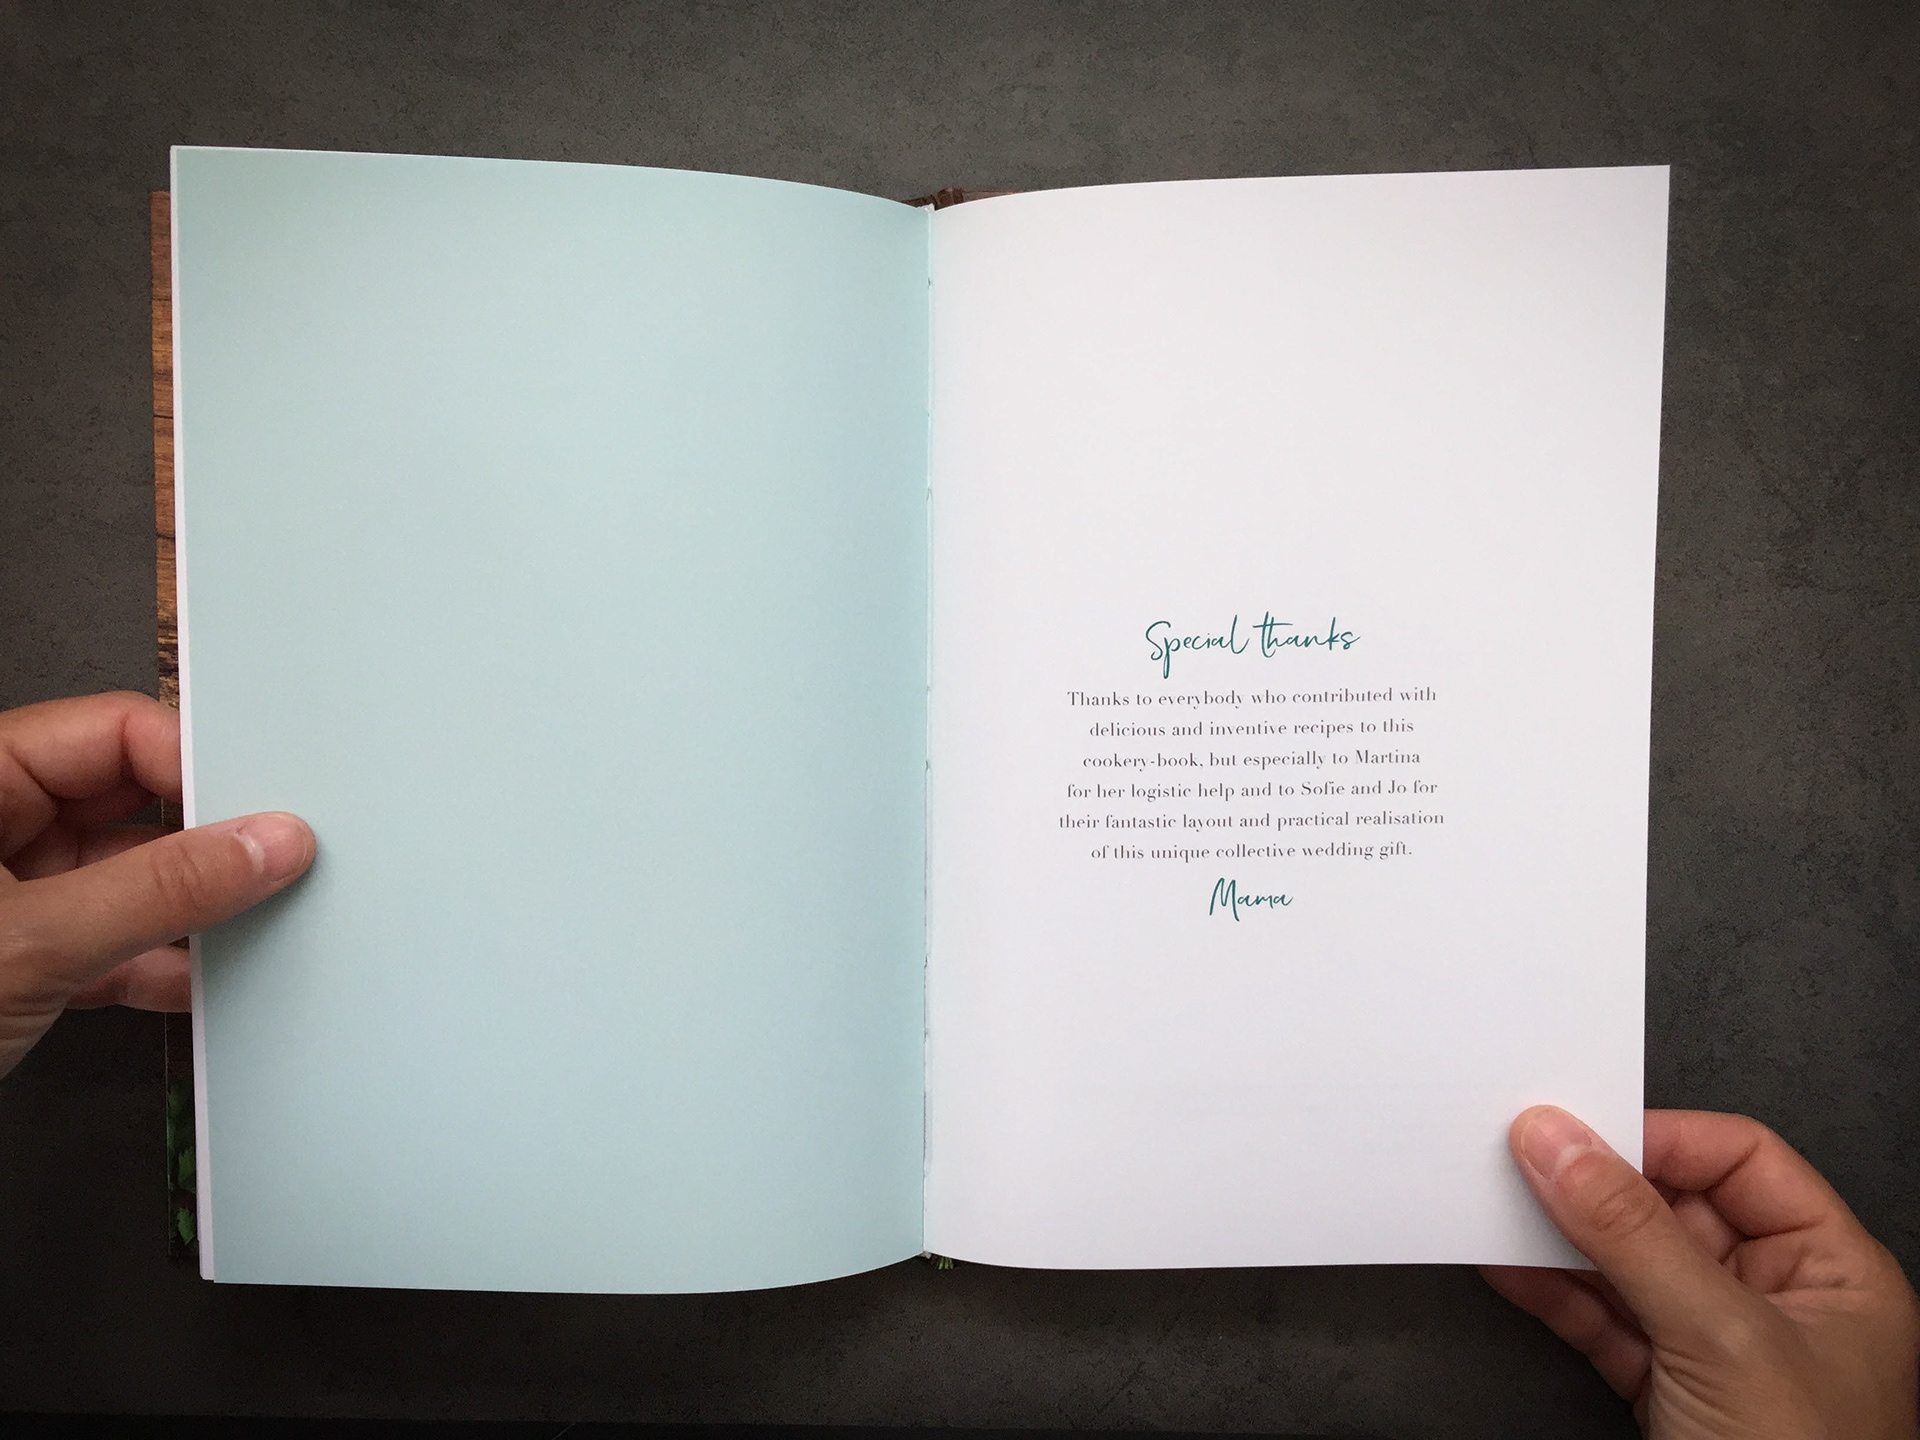 Special thanks
Thanks to everybody who contributed with
delicious and inventive recipes to this
cookery-book, but especially to Martina
for her logistic help and to Sofie and Jo for
their fantastic layout and practical realisation
of this unique collective wedding gift.
Mama